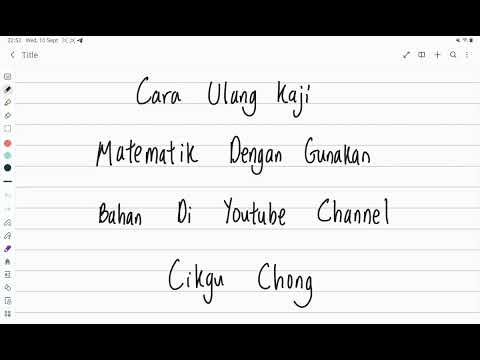 22:52 Wed, 10 Sept
Title
Cara Ulang Kaji
Matematik Dengan Gunakan
Bahan Di Youtube Channel
Cikgu Chong